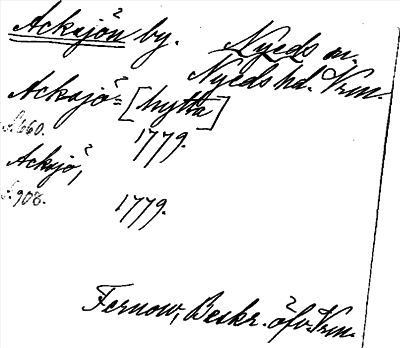 Acksjön by. Nyeds sn.
Nyeds hd. Vrm.
Acksjö= [hytta]
S. 660. 1779.
Acksjö,
S. 908. 1779.
Fernow, Beskr. öfv. Vrm.